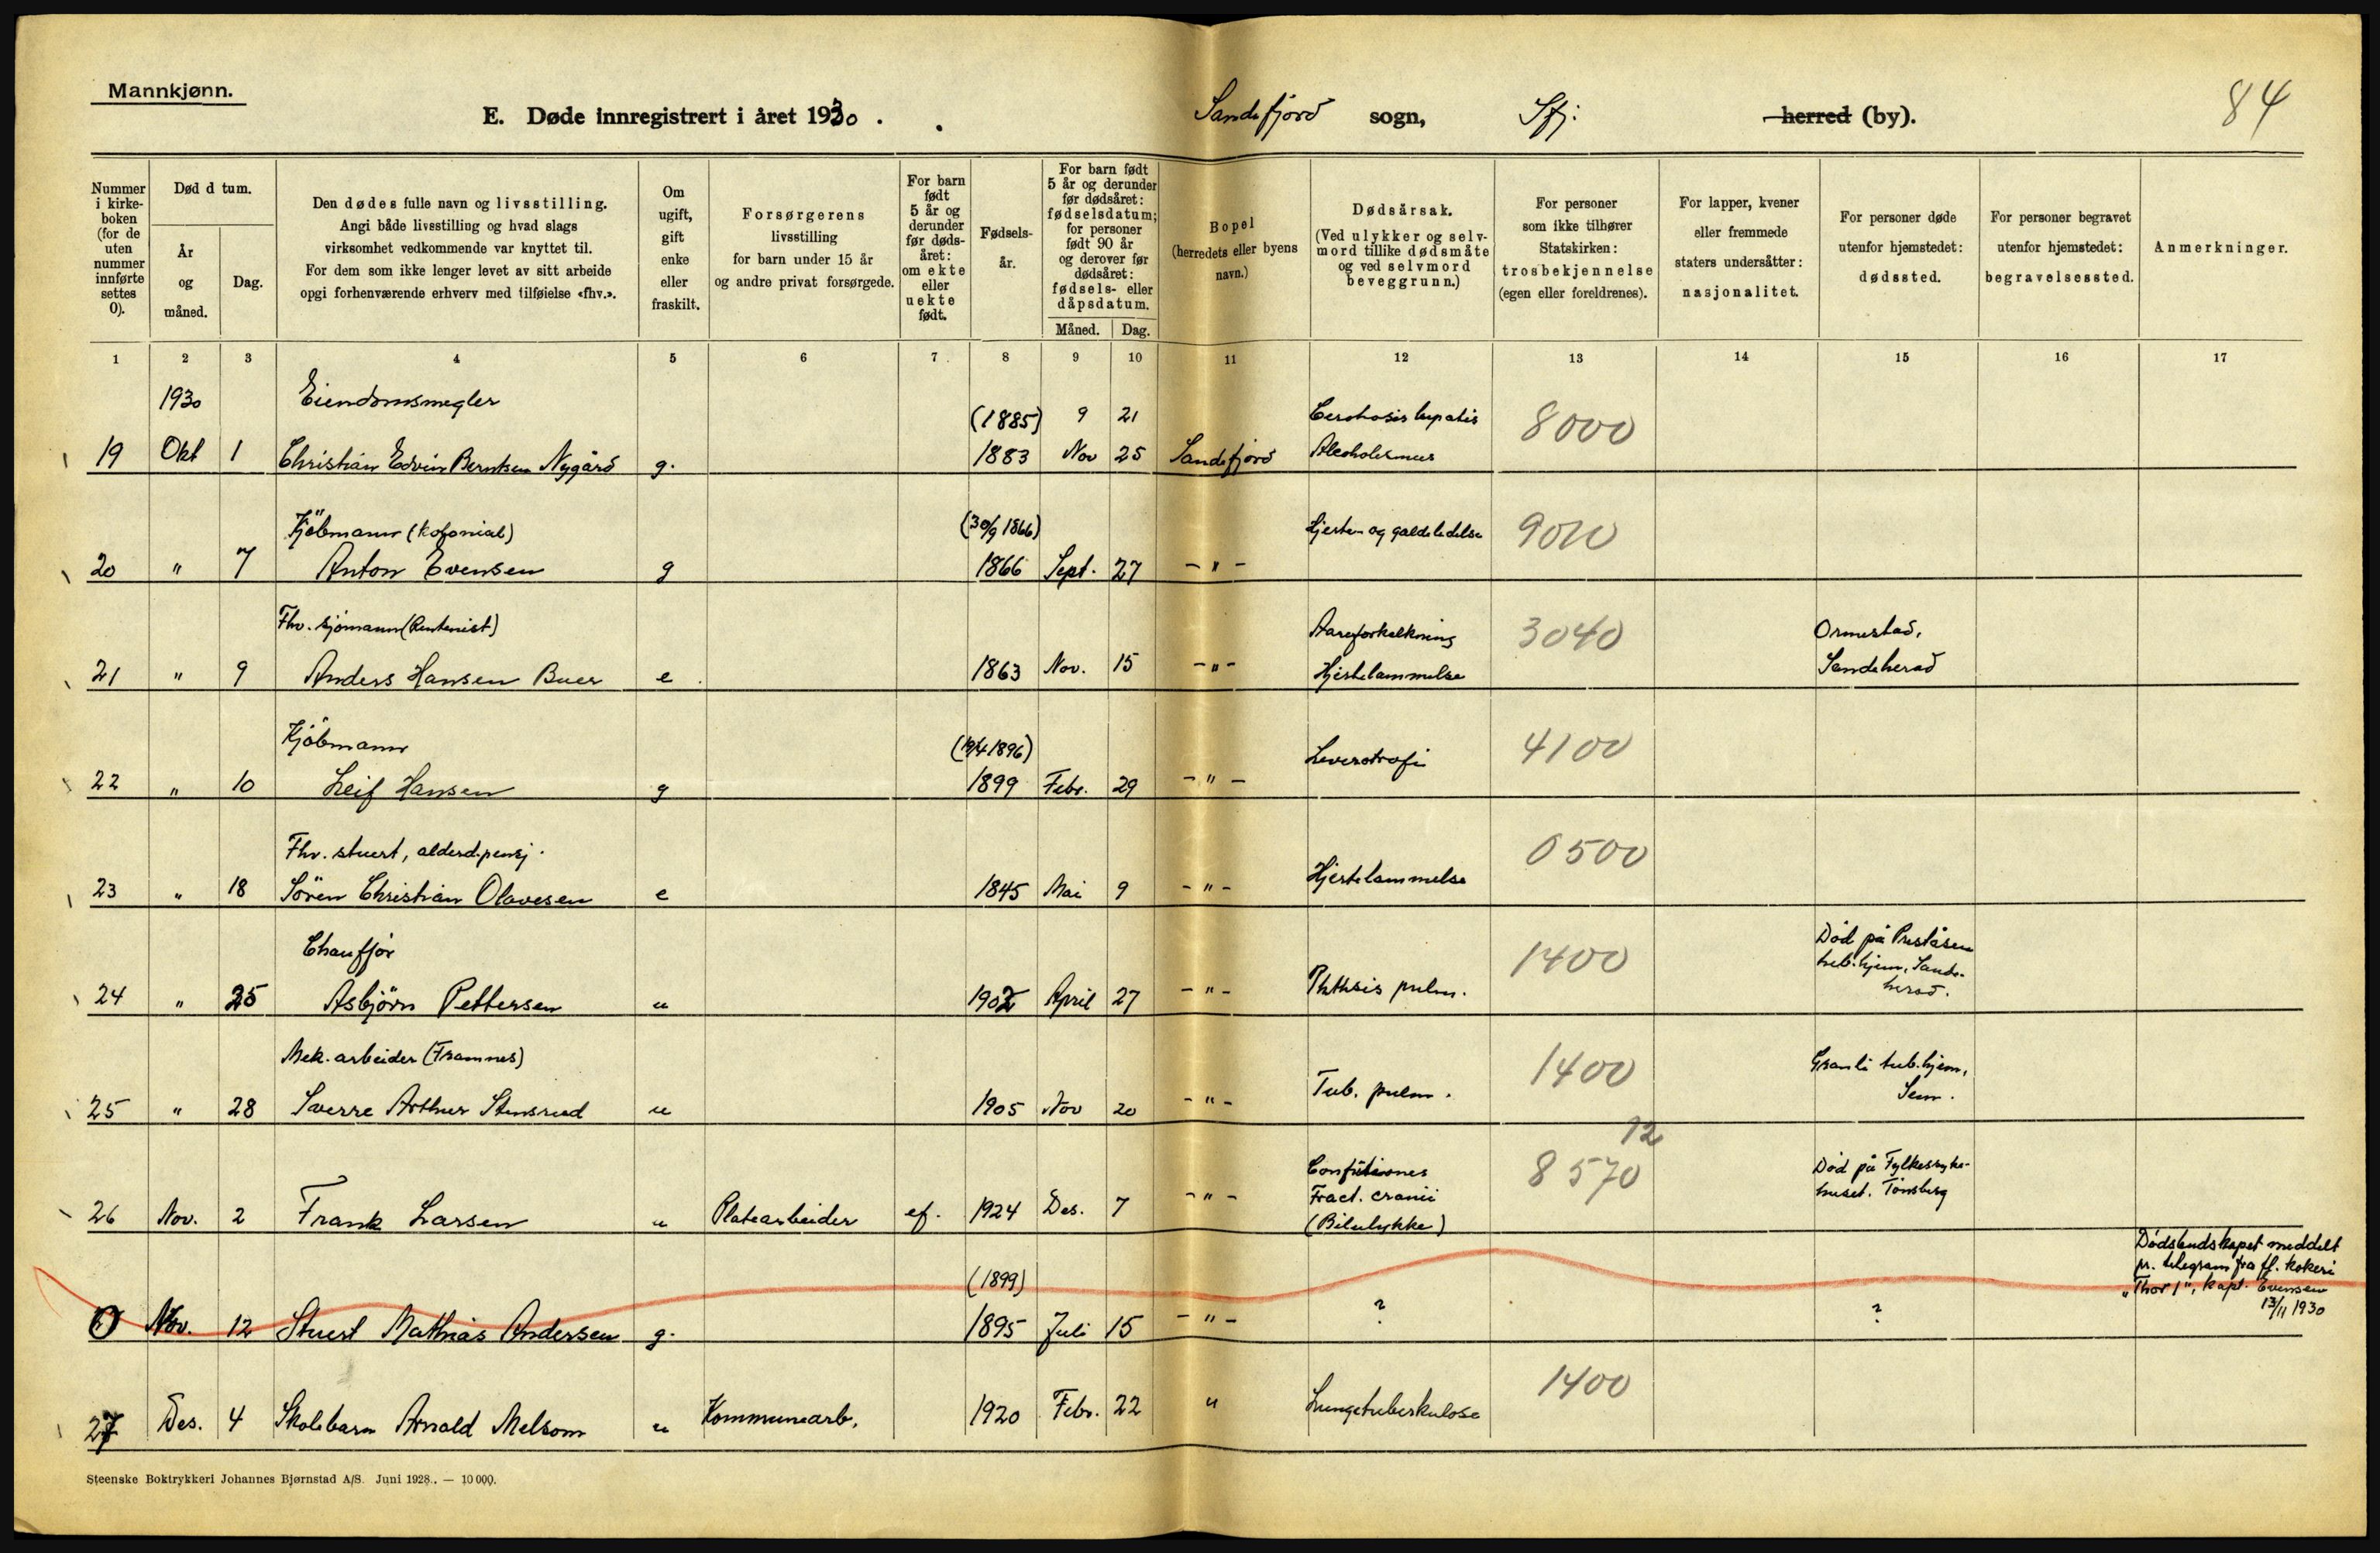 Mannkjønn.
E. Døde innregistrert i året 1930 .
Sandefjord sogn, Sfj: herred (by).
84
Nummer i kirkeboken (for de uten nummer innførte settes 0).
Død d tum.
År og måned.
Dag.
Den dødes fulle navn og livsstilling.
Angi både livsstilling og hvad slags
virksomhet vedkommende var knyttet til.
For dem som ikke lenger levet av sitt arbeide
opgi forhenværende erhverv med tilføielse «fhv.».
Om ugift, gift enke eller fraskilt.
Forsørgerens
livsstilling
for barn under 15 år
og andre privat forsørgede.
For barn født 5 år og derunder før dødsåret: om ekte eller uekte født.
Fødselsår.
For barn født 5 år og derunder før dødsåret: fødselsdatum; for personer født 90 år og derover før dødsåret: fødsels- eller dåpsdatum.
Måned. Dag.
Bopel
(herredets eller byens
navn.)
Dødsårsak.
(Ved ulykker og selvmord tillike dødsmåte og ved selvmord beveggrunn.)
For personer
som ikke tilhører
Statskirken:
trosbekjennelse
(egen eller foreldrenes).
For lapper, kvener
eller fremmede
staters undersåtter:
nasjonalitet.
For personer døde
utenfor hjemstedet:
dødssted.
For personer begravet
utenfor hjemstedet:
begravelsessted.
Anmerkninger.
1 2 3 4 5 6 7 8 9 10 11 12 13 14 15 16 17
1930 Eiendomsmegler (1885) 9 21 hepatis 8000
19 Okt 1 Christian Edvin Berntsen Nygård g. 1883 Nov 25 Sandefjord Alcoholismus
Kjöbmann (kolonial) (30/9 1866) Hjerte- og galdeledelse 9010
20 " 7 Anton Evensen g 1866 Sept. 27 - " -
Fhv. sjömann (Rentenist) Aareforkalkning 3040 Ormestad,
21 " 9 Anders Hansen Buer e 1863 Nov. 15 - " - Hjertelammelse Sandeherad
Kjöbmann (19/4 1896) Leveratrofi 4100
22 " 10 Leif Hansen g 1899 Febr. 29 - " -
Fhv. stuert, alderd.pensj. 0500
23 " 18 Sören Christian Olavesen e 1845 Mai 9 - " - Hjertelammelse
Chauffør 1400 Död på Preståsen tub.hjem, Sandeherad.
24 " 25 Asbjörn Pettersen u 1902 April 27 - " - Phthisis pulm.
Mek. arbeider (Framnes) 1400 Granli tub.hjem, Sem.
25 " 28 Sverre Arthur Stensrud u 1905 Nov 20 - " - Tub. pulm.
12
8570
26 Nov. 2 Frank Larsen u Platearbeider ef. 1924 Des. 7 - " - Fract. cranii (Bilulykke) Död på Fylkessykehuset. Tönsberg
(1899) Dödsbudskapet meddelt
pr. telegram fra fl. kokeri
"Thor I", kapt. Evensen
13/11 1930
0 Nov. 12 Stuert Mathias Andersen g. 1895 Juli 15 - " - ? ?
1400
27 Des. 4 Skolebarn Arnold Melsom u Kommunearb. 1920 Febr. 22 " Lungetuberkulose
Steenske Boktrykkeri Johannes Bjørnstad A/S. Juni 1928. — 10 000.